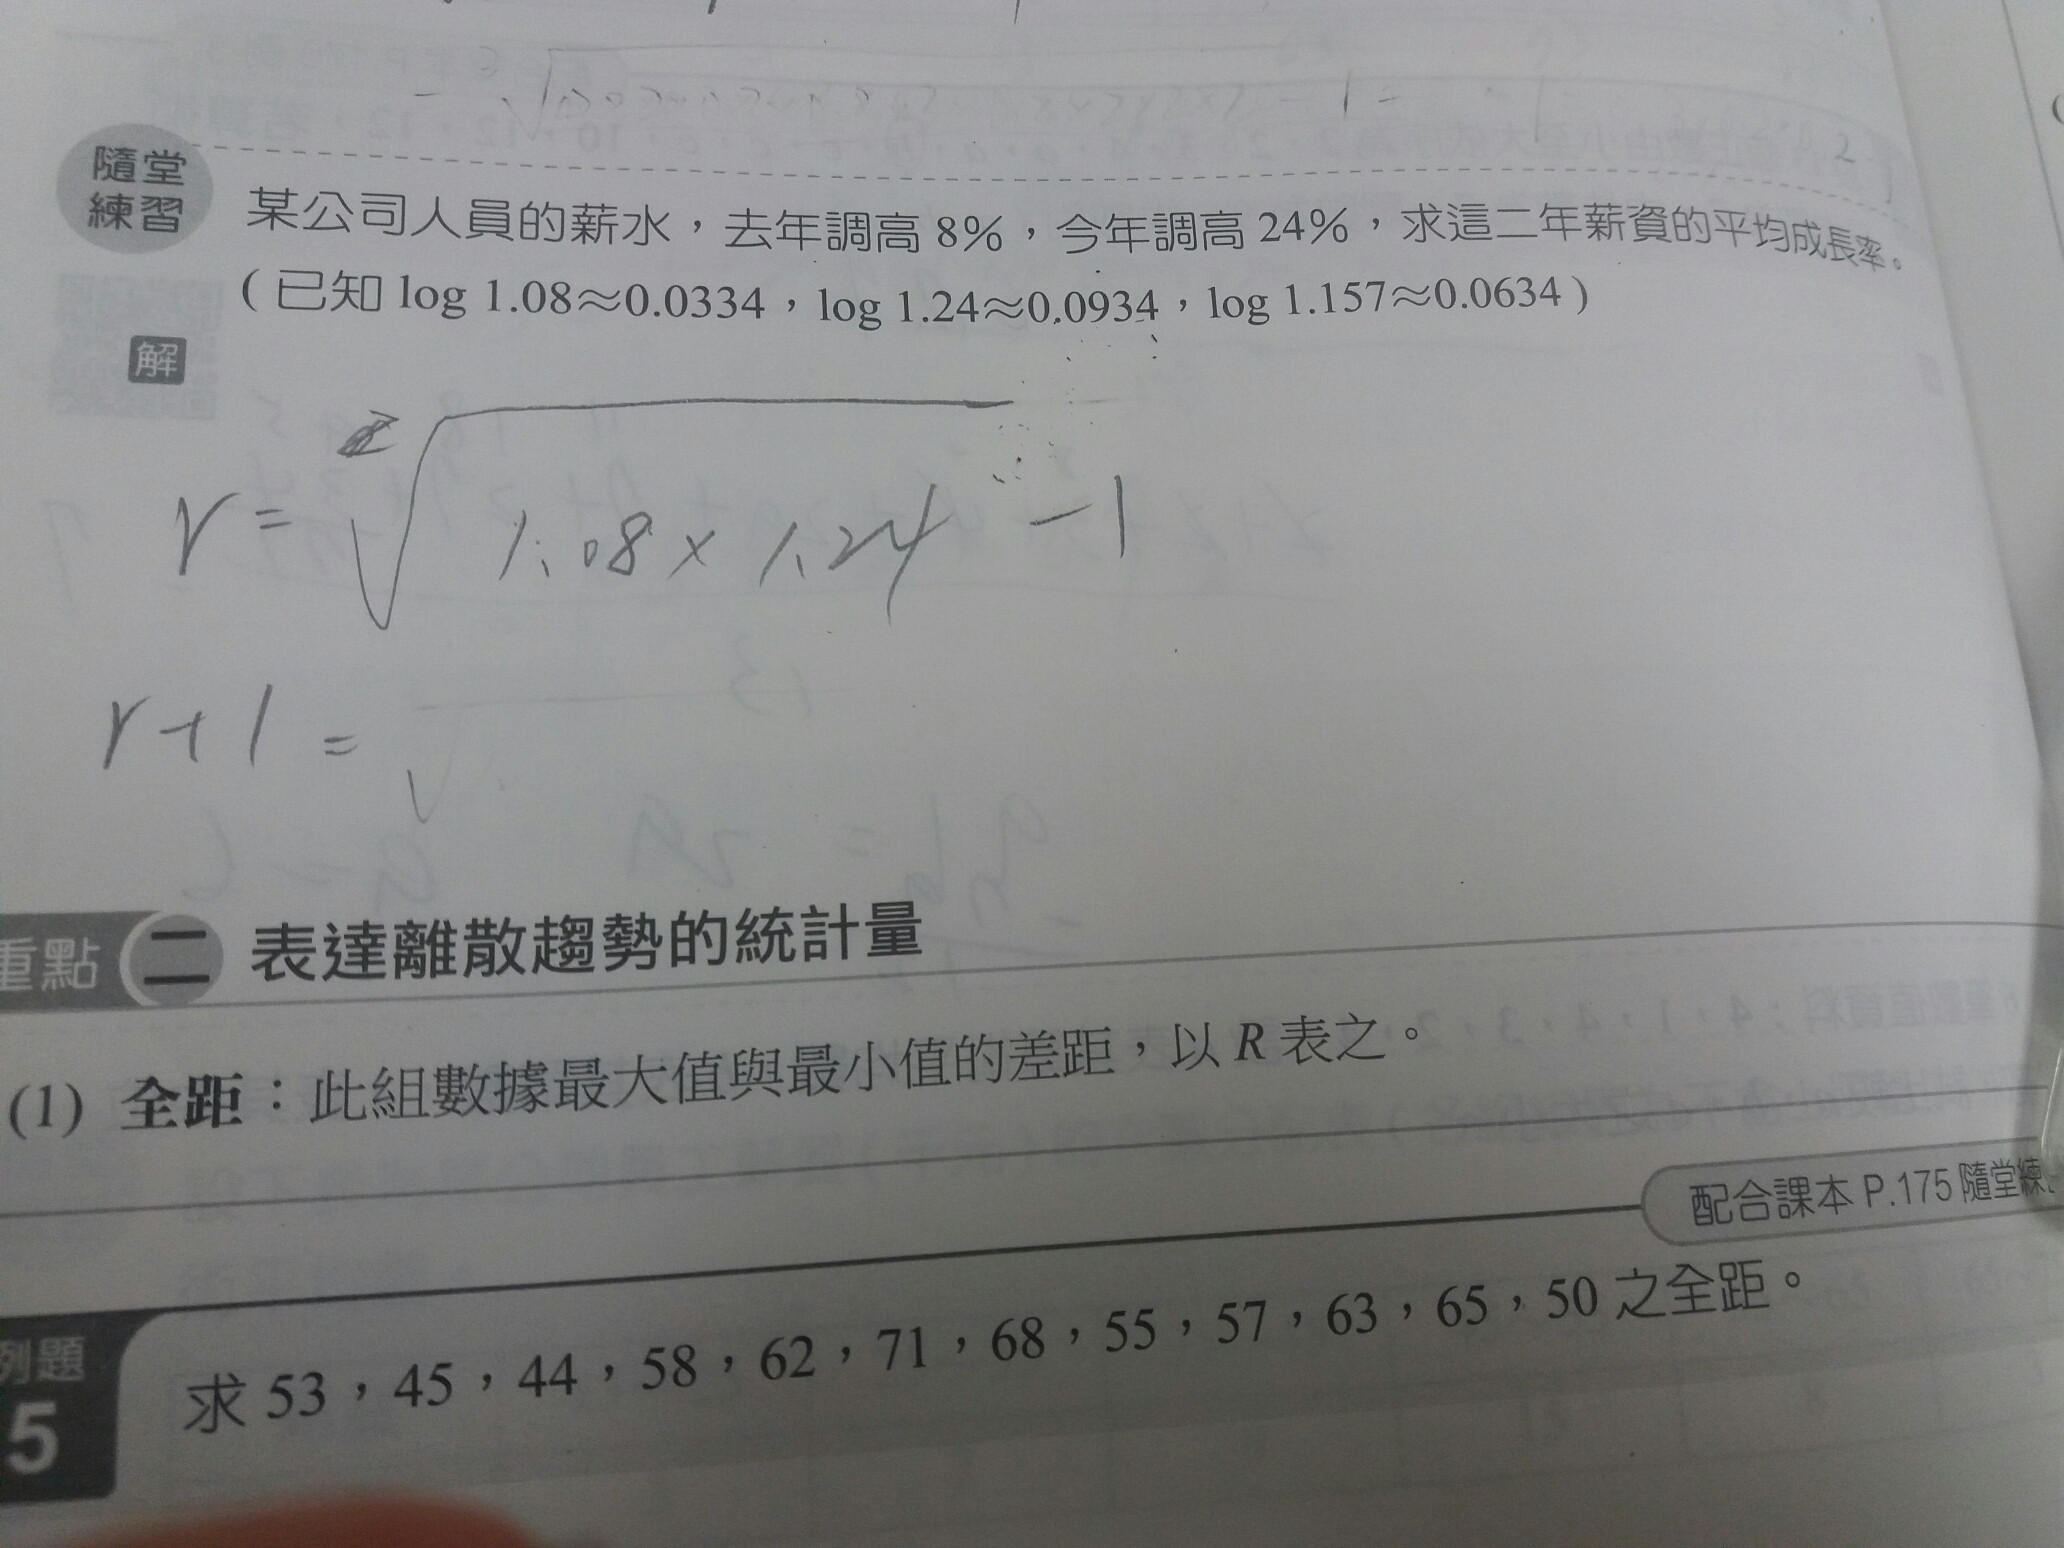 隨堂
練習
某公司人員的薪水，去年調高 8%，今年調高 24%，求這二年薪資的平均成長率。
（已知 log 1.08≈0.0334，log 1.24≈0.0934，log 1.157≈0.0634）
解
r = ²√1.08 × 1.24 - 1
r + 1 = √
重點 二 表達離散趨勢的統計量
(1) 全距：此組數據最大值與最小值的差距，以 R 表之。
配合課本 P.175 隨堂練
例題
5
求 53，45，44，58，62，71，68，55，57，63，65，50 之全距。